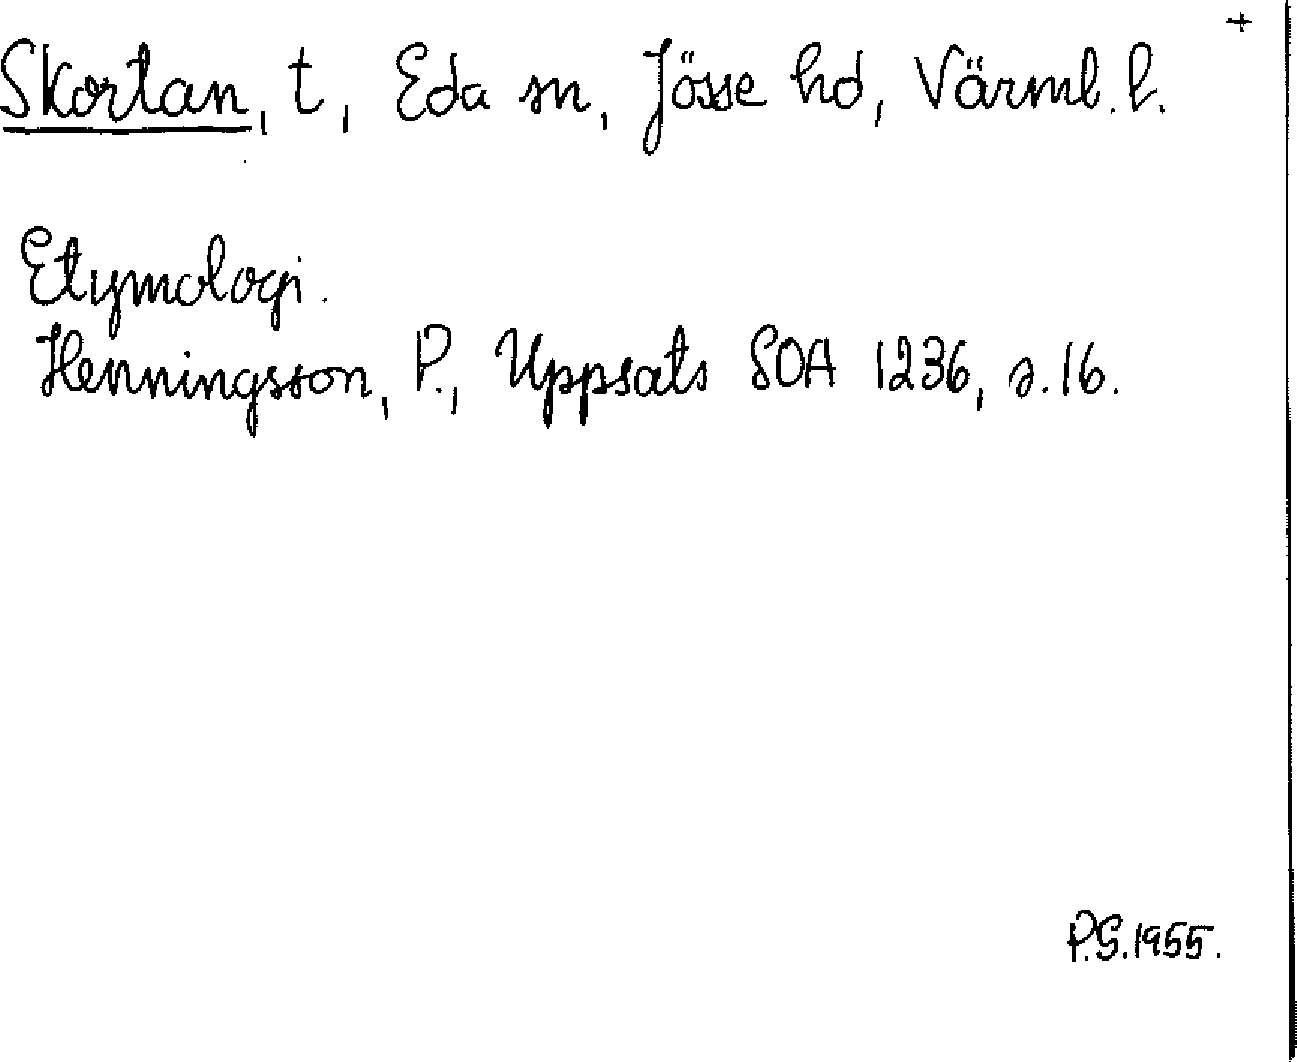 +
Skortan, t, Eda sn, Jösse hd, Värml. l.
Etymologi.
Henningsson, P., Uppsats SOA 1236, s. 16.
P.S. 1955.